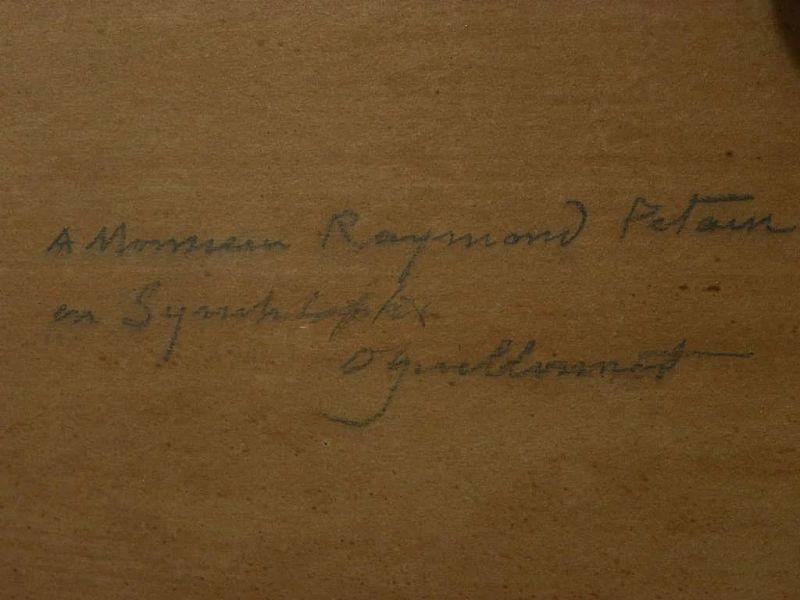 A Monsieur Raymond Petain
en Sympathie
O Guillonnet